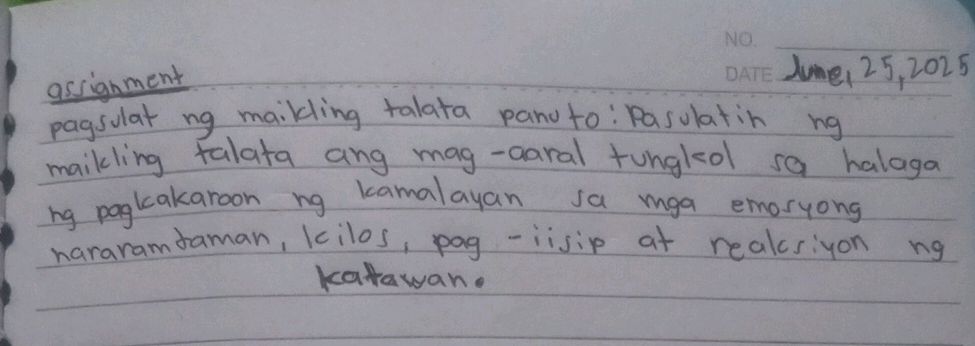 NO.
DATE June, 25, 2025
assignment
pagsulat ng maikling talata panuto: Pasulatin ng
maikling talata ang mag-aaral tungkol sa halaga
ng pagkakaroon ng kamalayan sa mga emosyong
nararamdaman, kilos, pag-iisip at reaksiyon ng
katawan.